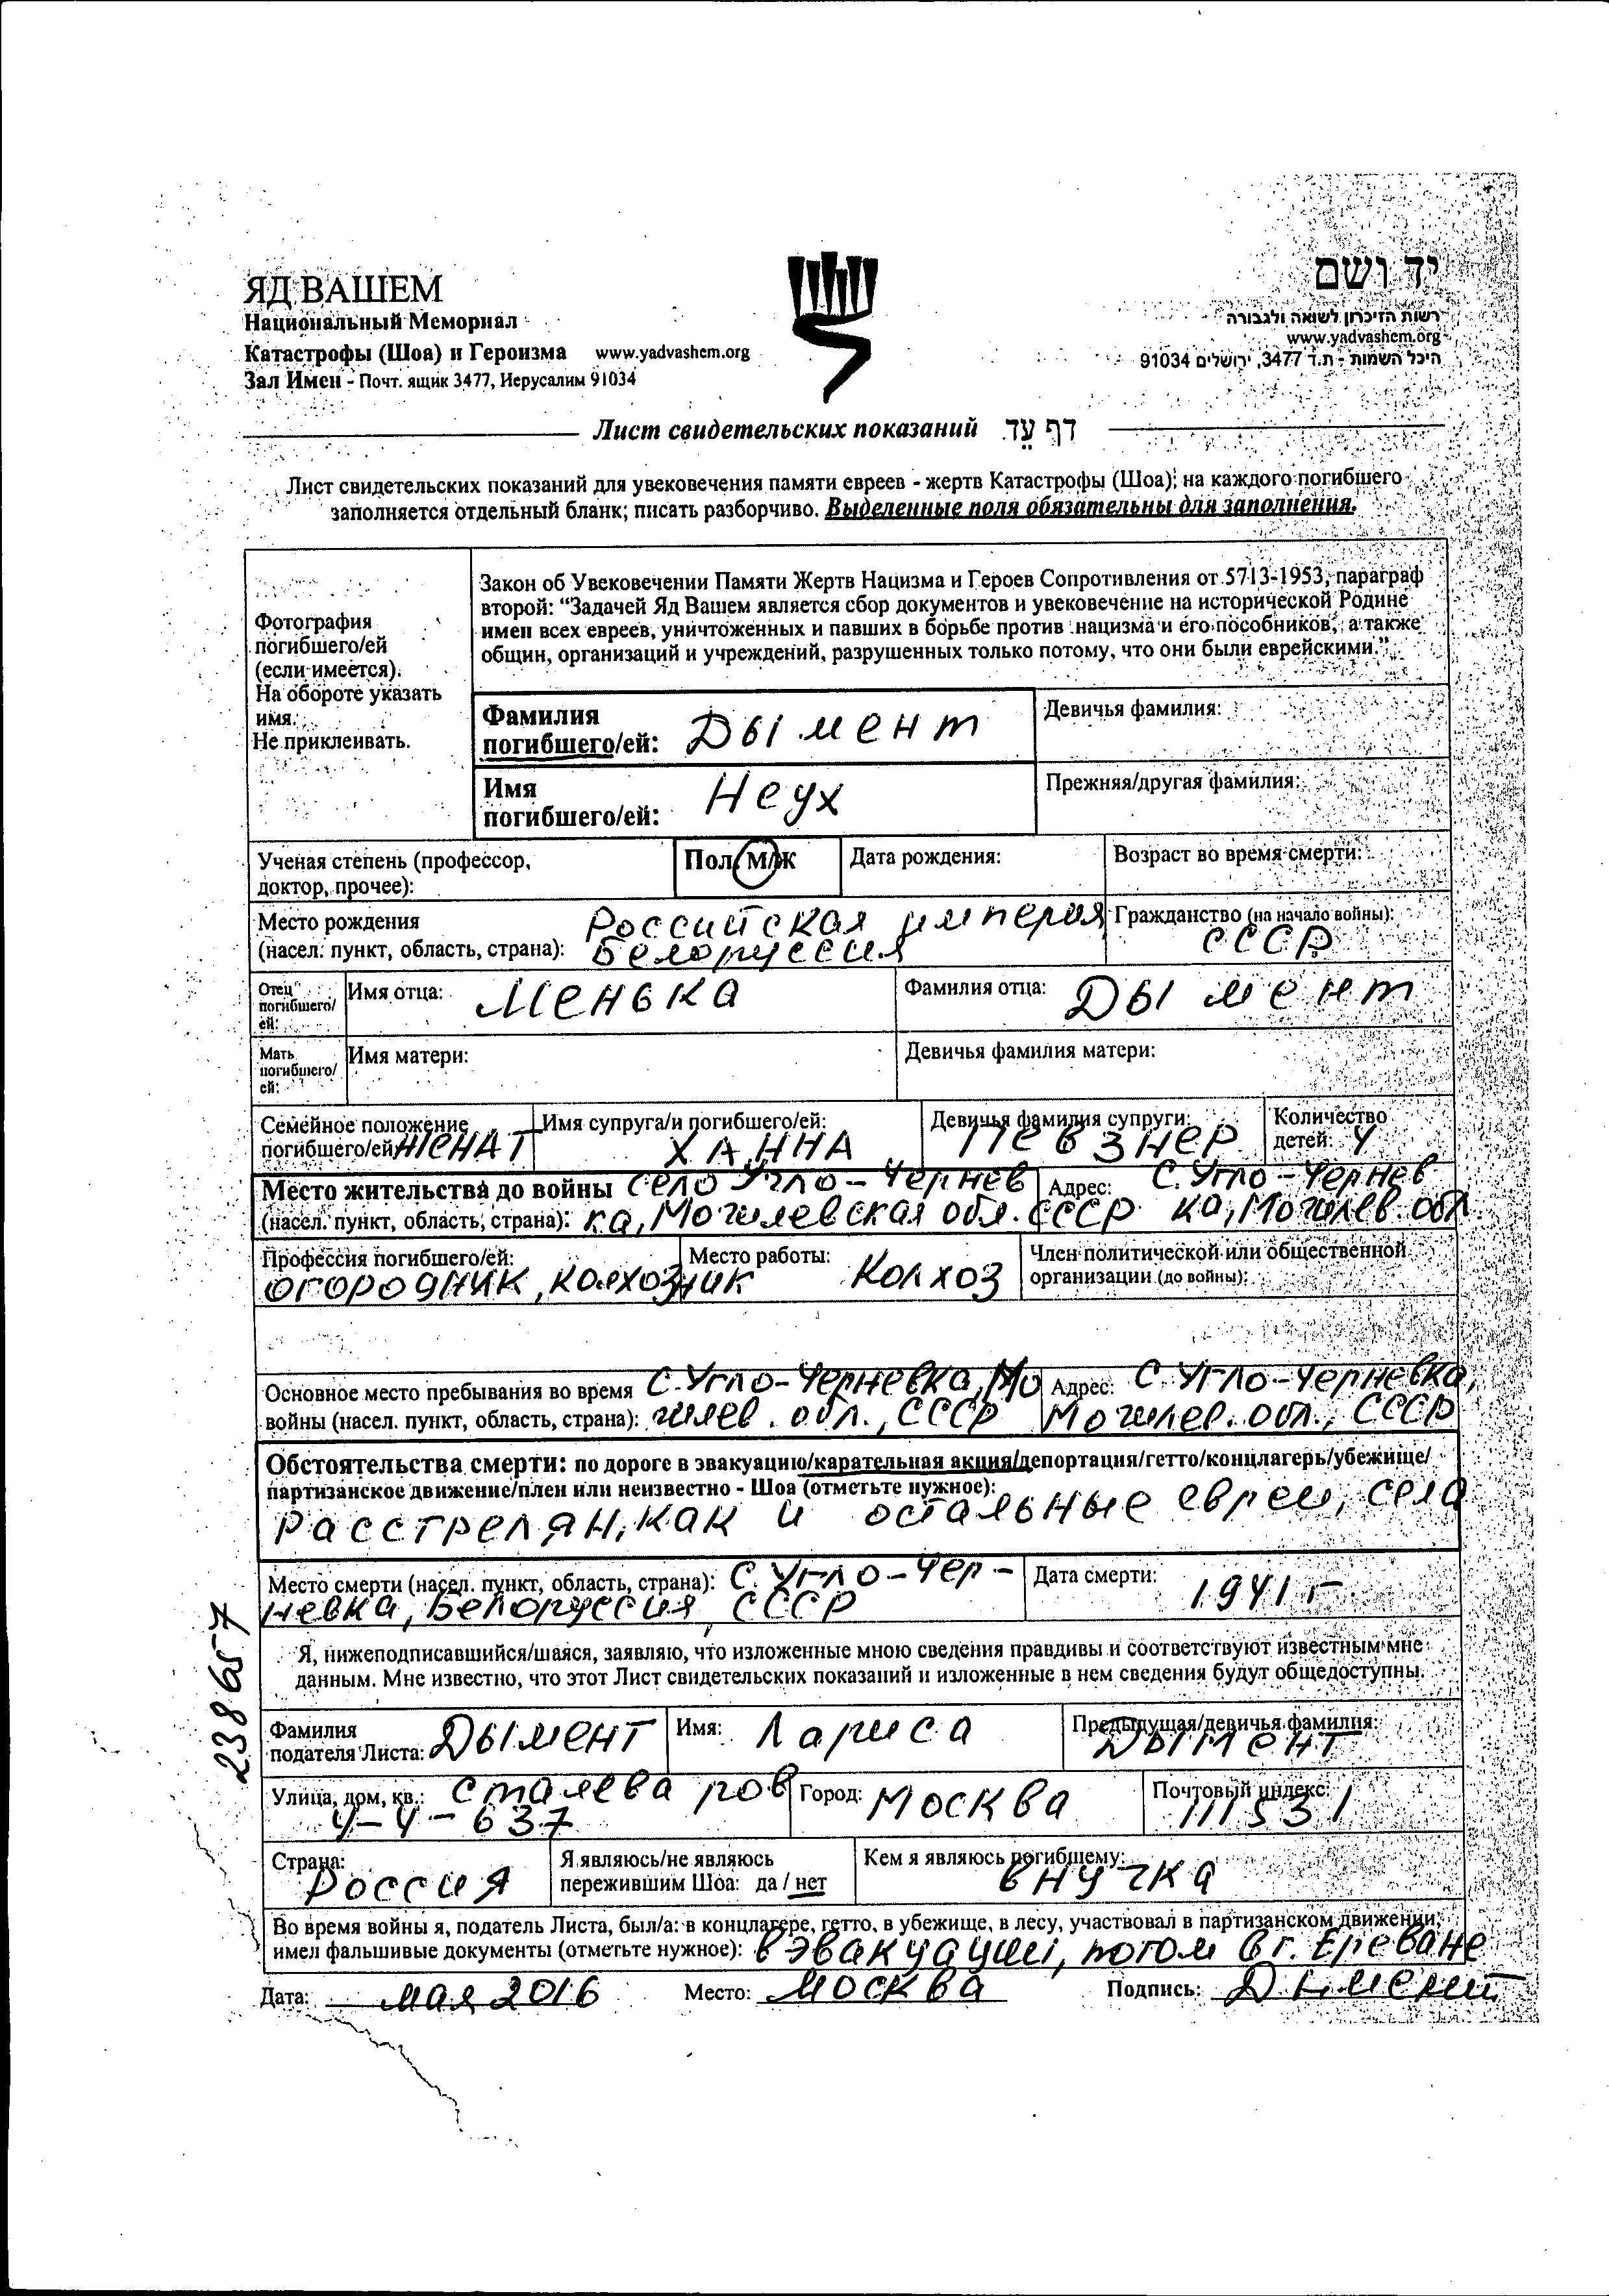 ЯД ВАШЕМ
Национальный Мемориал
Катастрофы (Шоа) и Героизма www.yadvashem.org
Зал Имен - Почт. ящик 3477, Иерусалим 91034
יד ושם
רשות הזיכרון לשואה ולגבורה
www.yadvashem.org
היכל השמות - ת.ד 3477, ירושלים 91034
Лист свидетельских показаний דף עד
Лист свидетельских показаний для увековечения памяти евреев - жертв Катастрофы (Шоа); на каждого погибшего
заполняется отдельный бланк; писать разборчиво. Выделенные поля обязательны для заполнения.
Фотография
погибшего/ей
(если имеется).
На обороте указать
имя.
Не приклеивать.
Закон об Увековечении Памяти Жертв Нацизма и Героев Сопротивления от 5713-1953, параграф
второй: “Задачей Яд Вашем является сбор документов и увековечение на исторической Родине
имен всех евреев, уничтоженных и павших в борьбе против нацизма и его пособников, а также
общин, организаций и учреждений, разрушенных только потому, что они были еврейскими.”
Фамилия
погибшего/ей: Дымент
Девичья фамилия:
Имя
погибшего/ей: Неух
Прежняя/другая фамилия:
Ученая степень (профессор,
доктор, прочее):
Пол М/Ж
Дата рождения:
Возраст во время смерти:
Место рождения Российская империя
(насел. пункт, область, страна): Белоруссия
Гражданство (на начало войны):
СССР
Отец
погибшего/
ей:
Имя отца: Менька
Фамилия отца: Дымент
Мать
погибшего/
ей:
Имя матери:
Девичья фамилия матери:
Семейное положение
погибшего/ей: ЖЕНАТ
Имя супруга/и погибшего/ей:
ХАННА
Девичья фамилия супруги:
Певзнер
Количество
детей: 4
Место жительства до войны село Угло-Чернев
(насел. пункт, область, страна): ка, Могилевская обл. СССР
Адрес: С. Угло-Чернев
ка, Могилев. обл.
Профессия погибшего/ей:
огородник, колхозник
Место работы: Колхоз
Член политической или общественной
организации (до войны):
Основное место пребывания во время С. Угло-Черневка, Мо
войны (насел. пункт, область, страна): гилев. обл., СССР
Адрес: С. Угло-Черневка,
Могилев. обл., СССР
Обстоятельства смерти: по дороге в эвакуацию/карательная акция/депортация/гетто/концлагерь/убежище/
партизанское движение/плен или неизвестно - Шоа (отметьте нужное):
Расстрелян, как и остальные евреи, села
Место смерти (насел. пункт, область, страна): С. Угло-Чер-
невка, Белоруссия, СССР
Дата смерти:
1941 г.
Я, нижеподписавшийся/шаяся, заявляю, что изложенные мною сведения правдивы и соответствуют известным мне
данным. Мне известно, что этот Лист свидетельских показаний и изложенные в нем сведения будут общедоступны.
238657
Фамилия
подателя Листа: Дымент
Имя: Лариса
Предыдущая/девичья фамилия:
Дымент
Улица, дом, кв.: сталева ров
4-4-637
Город: Москва
Почтовый индекс:
111531
Страна:
Россия
Я являюсь/не являюсь
пережившим Шоа: да / нет
Кем я являюсь погибшему:
внучка
Во время войны я, податель Листа, был/а: в концлагере, гетто, в убежище, в лесу, участвовал в партизанском движении,
имел фальшивые документы (отметьте нужное): в эвакуации, потом в г. Ереване
Дата: мая 2016 Место: Москва Подпись: Дымент